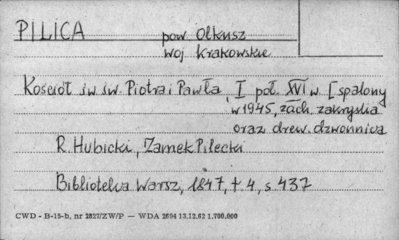 PILICA pow. Olkusz
woj. Krakowskie
Kościół św. św. Piotra i Pawła, I poł. XVI w. [spalony
w 1945, zach. zakrystia
oraz drew. dzwonnica
R. Hubicki, Zamek Pilecki
Biblioteka Warsz, 1847, t. 4, s. 437
CWD - B-15-b, nr 2827/ZW/P — WDA 2694 13.12.62 1.700.000